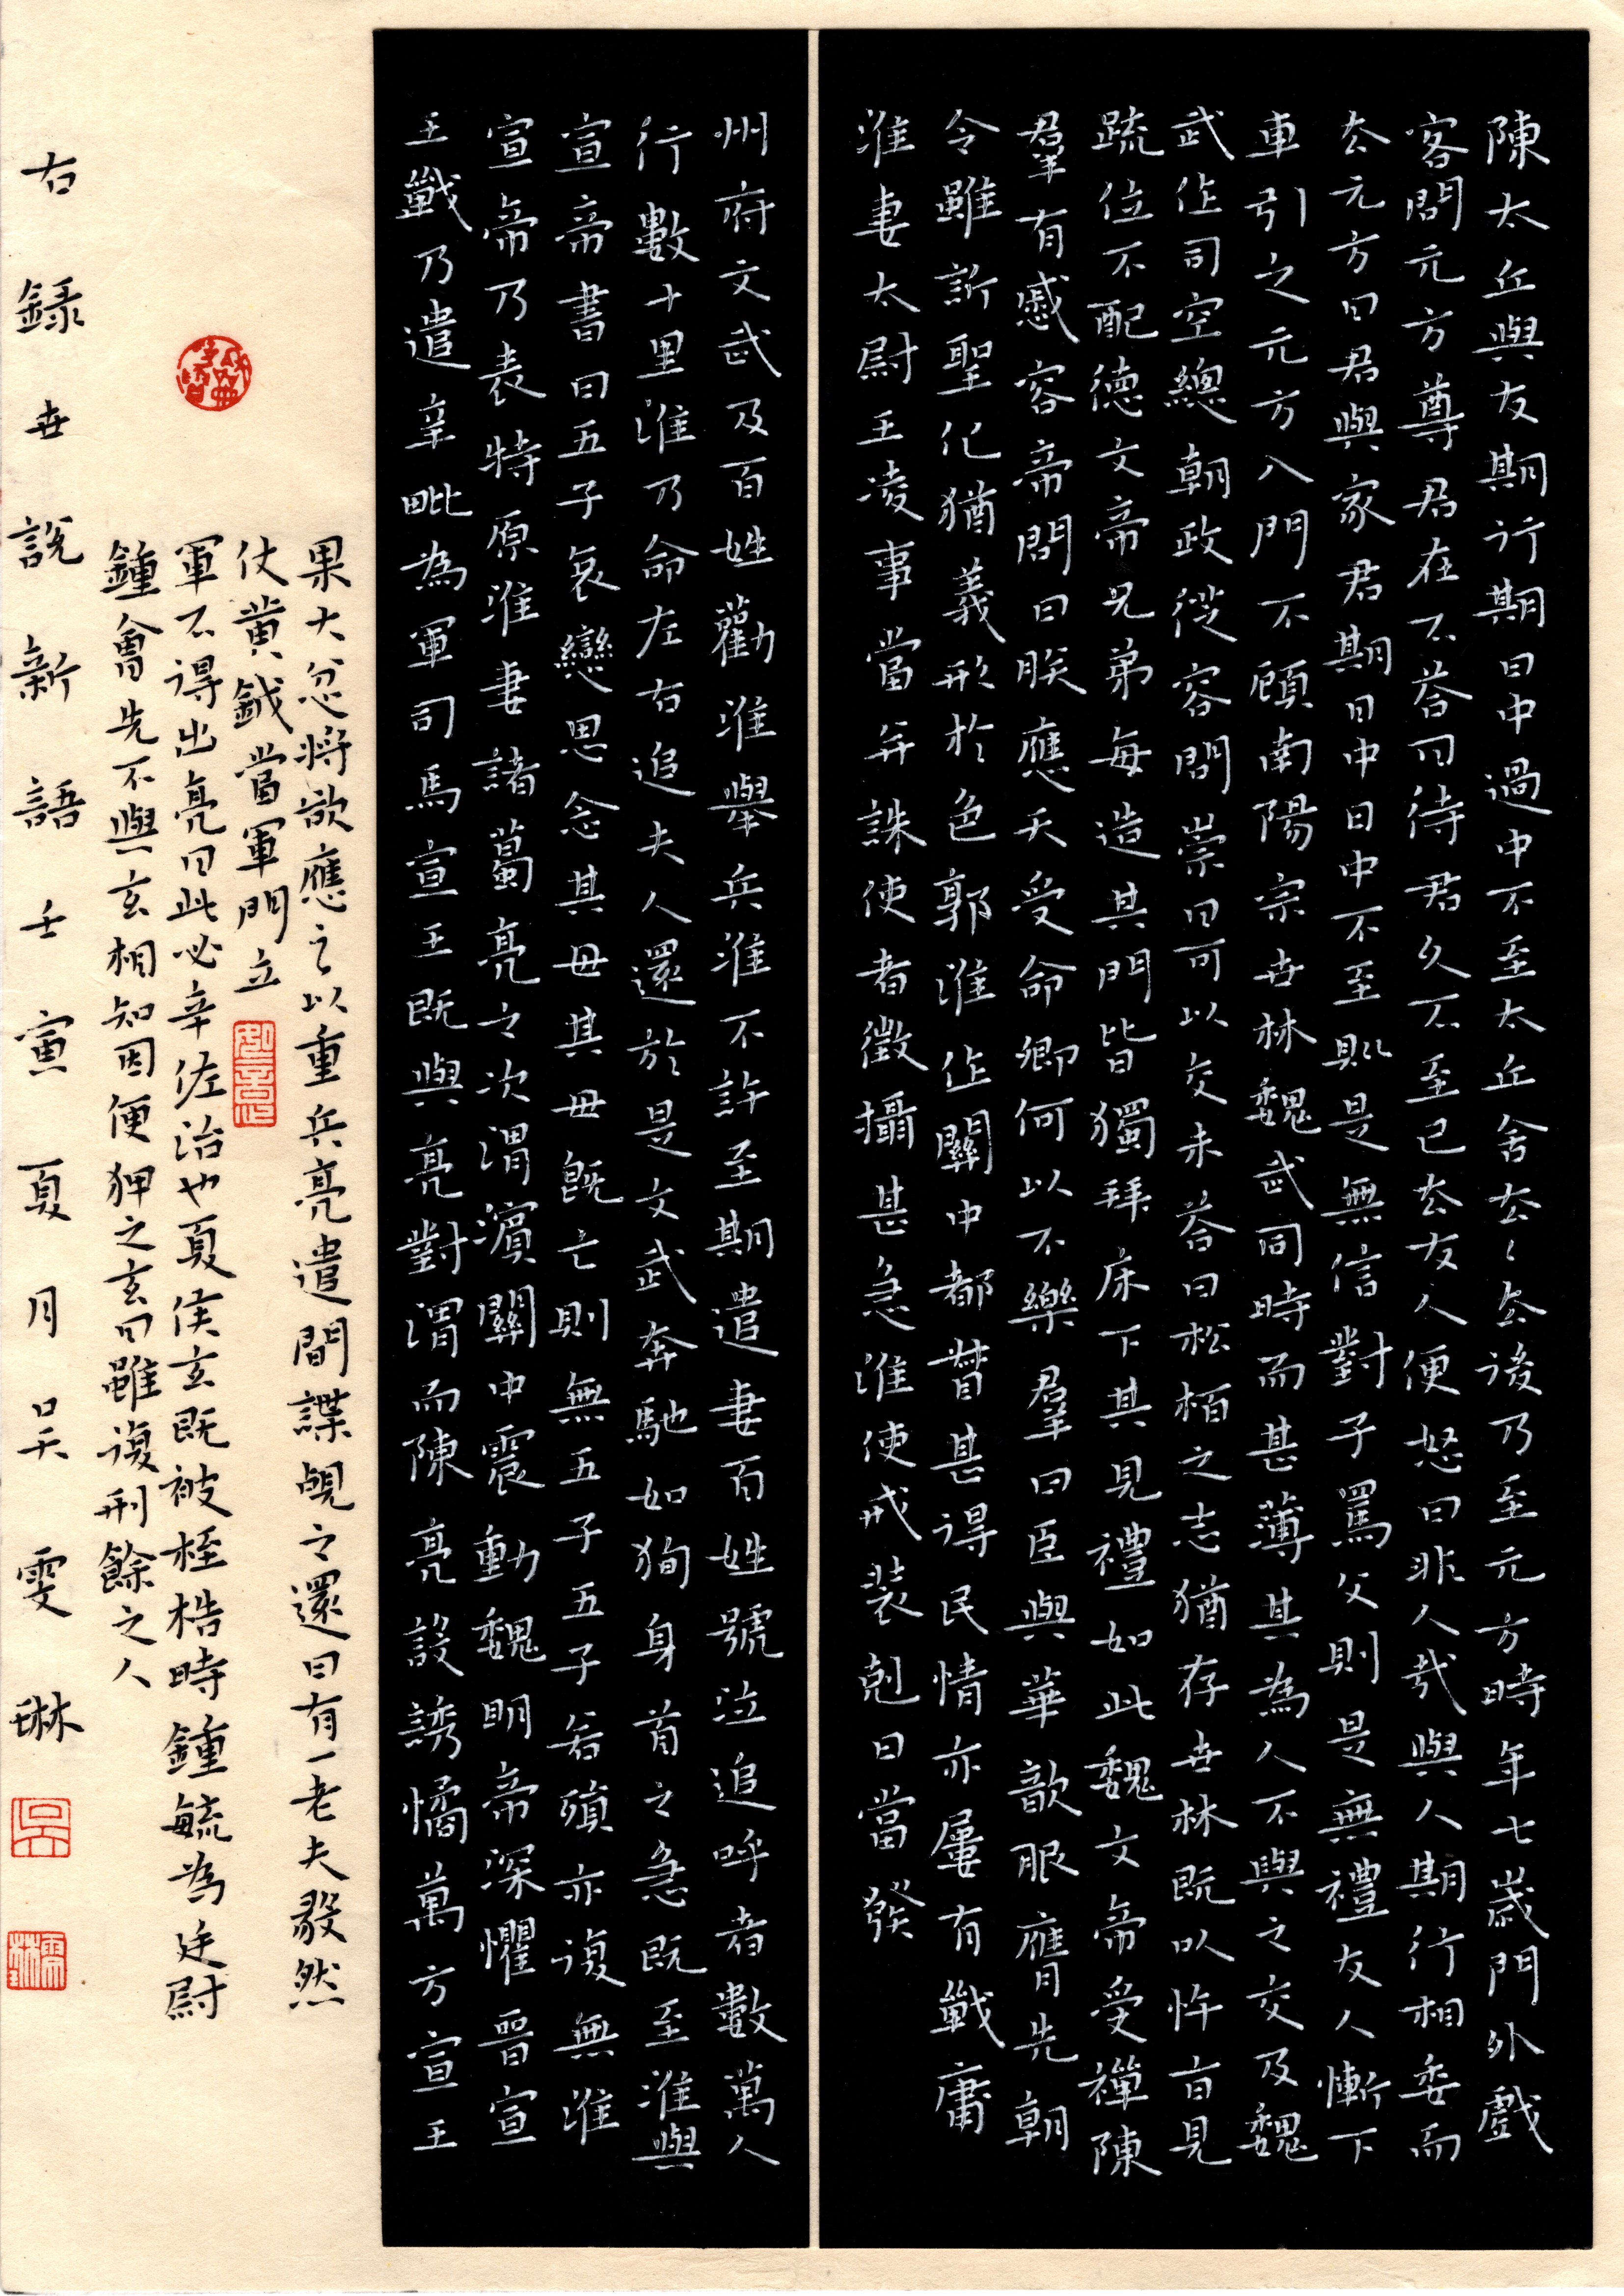 陳太丘與友期行期日中過中不至太丘舍去々後乃至元方時年七歲門外戲
客問元方尊君在不荅曰待君久不至已去友人便怒曰非人哉與人期行相委而
去元方曰君與家君期日中日中不至則是無信對子罵父則是無禮友人慚下
車引之元方入門不顧南陽宗世林魏武同時而甚薄其為人不與之交及魏
武作司空總朝政從容問宗曰可以交未荅曰松栢之志猶存世林既以忤旨見
疏位不配德文帝兄弟每造其門皆獨拜床下其見禮如此魏文帝受禪陳
羣有慼容帝問曰朕應天受命卿何以不樂羣曰臣與華歆服膺先朝
今雖訢聖化猶義形於色郭淮作關中都督甚得民情亦屢有戰庸
淮妻太尉王凌事當并誅使者徵攝甚急淮使戒裝剋日當發
州府文武及百姓勸淮舉兵淮不許至期遣妻百姓號泣追呼者數萬人
行數十里淮乃命左右追夫人還於是文武奔馳如狥身首之急既至淮與
宣帝書曰五子哀戀思念其母其母既亡則無五子五子若殞亦復無淮
宣帝乃表特原淮妻諸葛亮之次渭濱關中震動魏明帝深懼晉宣
王戰乃遣辛毗為軍司馬宣王既與亮對渭而陳亮設誘憰萬方宣王
果大忿將欲應之以重兵亮遣間諜覘之還曰有一老夫毅然
仗黃鉞當軍門立
軍不得出亮曰此必辛佐治也夏侯玄既被桎梏時鍾毓為廷尉
鍾會先不與玄相知因便狎之玄曰雖復刑餘之人
右錄世說新語壬寅夏月吴雯琳